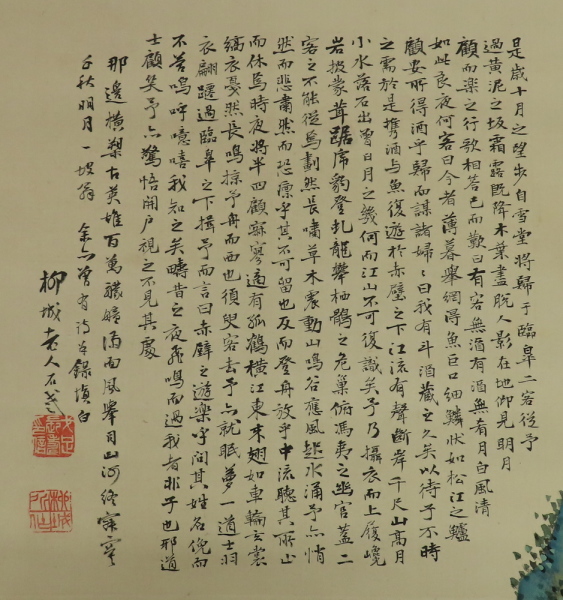 是歲十月之望步自雪堂將歸于臨皋二客從予
過黃泥之坂霜露既降木葉盡脫人影在地仰見明月
顧而樂之行歌相答已而歎曰有客無酒有酒無肴月白風清
如此良夜何客曰今者薄暮舉網得魚巨口細鱗狀如松江之鱸
顧安所得酒乎歸而謀諸婦〻曰我有斗酒藏之久矣以待子不時
之需於是携酒與魚復遊於赤壁之下江流有聲斷岸千尺山高月
小水落石出曾日月之幾何而江山不可復識矣予乃攝衣而上履巉
岩披蒙茸踞虎豹登虬龍攀栖鶻之危巢俯馮夷之幽宮蓋二
客之不能從焉劃然長嘯草木震動山鳴谷應風起水涌予亦悄
然而悲肅然而恐凜乎其不可留也反而登舟放乎中流聽其所止
而休焉時夜將半四顧寂寥適有孤鶴橫江東來翅如車輪玄裳
縞衣戛然長鳴掠予舟而西也須臾客去予亦就眠夢一道士羽
衣翩躚過臨皋之下揖予而言曰赤壁之遊樂乎問其姓名俛而
不答嗚呼噫嘻我知之矣疇昔之夜飛鳴而過我者非子也邪道
士顧笑予亦驚悟開戶視之不見其處
那邊橫槊古英雄百萬艨艟滿面風舉目山河終寂寞
千秋明月一坡翁 余亦曾有詩並錄填白
柳城老人